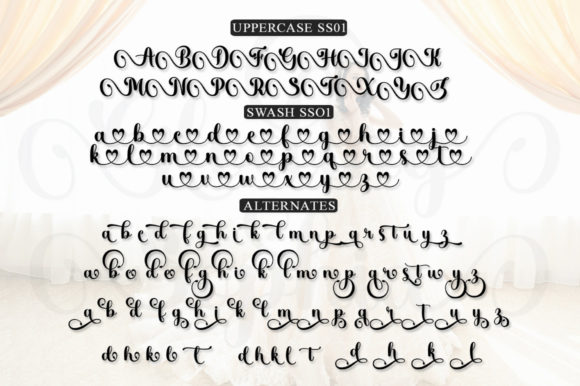 UPPERCASE SS01
A B D F G H I J K
M N P R S T X Y Z
SWASH SS01
a b c d e f g h i j
k l m n o p q r s t
u v w x y z
ALTERNATES
a b c d f g h i k l m n p q r s t u y z
d h k l t d h k l t d h k l